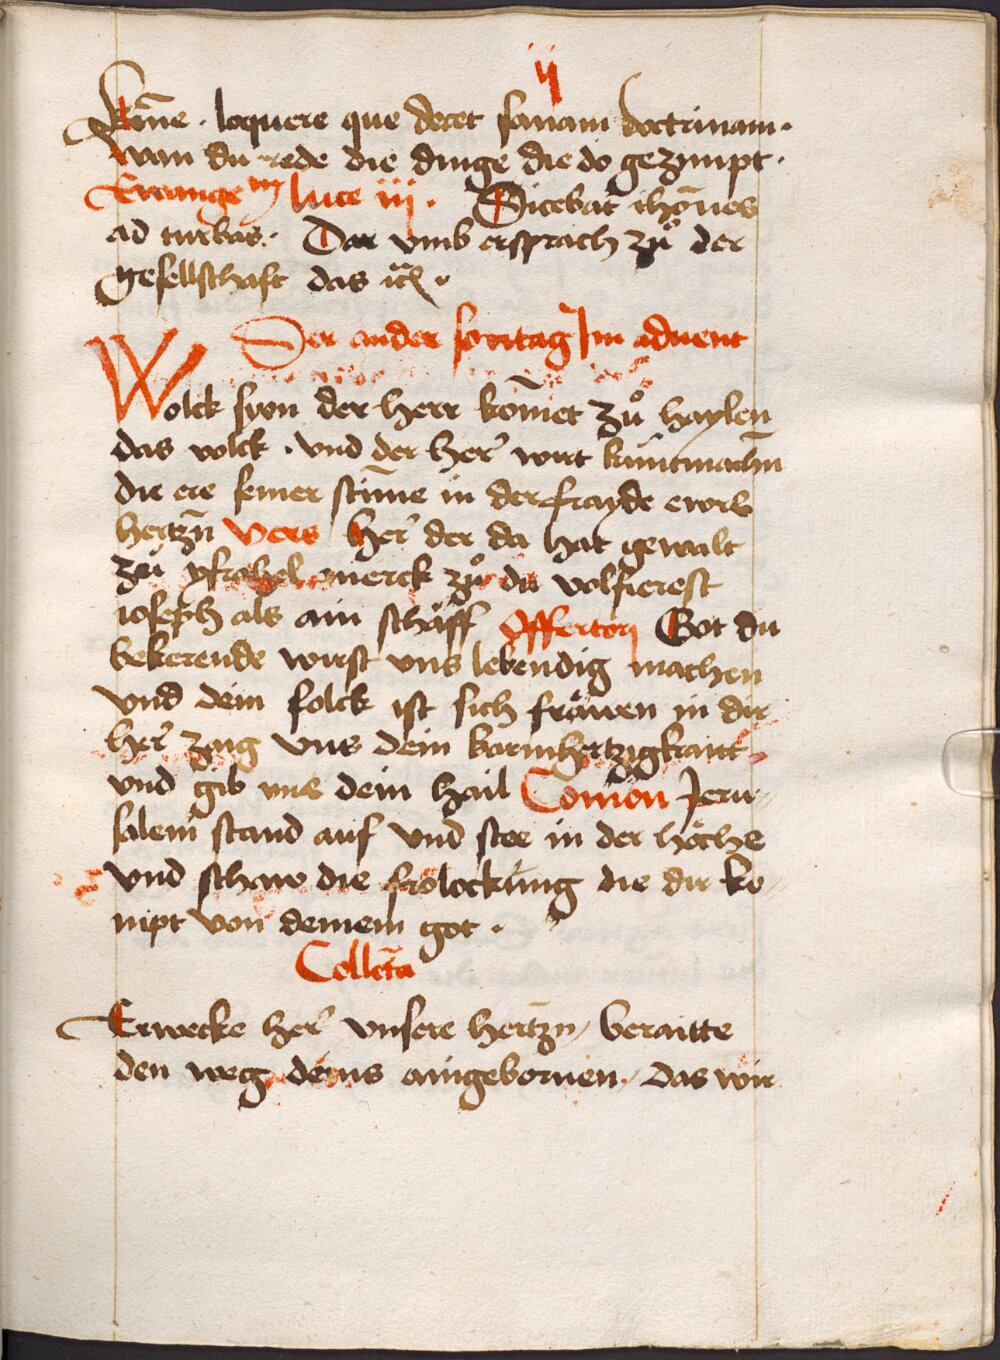 ij
kōne · loquere que decet sanam doctrinam ·
wan du rede die dinge die do gezimpt ·
Ewangeᵐ luce iij · Dicebat ihōnes
ad turbas · Dar vmb ersprach zů der
gesellschaft das ꝛc̄ ·
Der ander sontag Jm aduent
Wolck syon der herr kom̄et zů haylen
das volck · vnd der her̄ wirt kuntmachn̄
die ere seiner stim̄e in der frayde ewrs
hertzn̄ vers her̄ der da hat gewalt
zů ysrahel merck zů du volfierest
ioseph als ain schäff Offertorj Got du
bekerende wirst vns lebendig machen
vnd dein folck ist sich fräwen in dir
her̄ zaig vns dein barmhertzigkaitt
vnd gib vns dein hail Comōn Jeru⸗
salem stand auf vnd stee in der höche
vnd schaw die frölockung die dir ko⸗
mpt von deinem got ·
Collec̄ta
Erwecke her̄ vnsere hertzn̄ / beraitte
den weg deins aingebornen / das wir